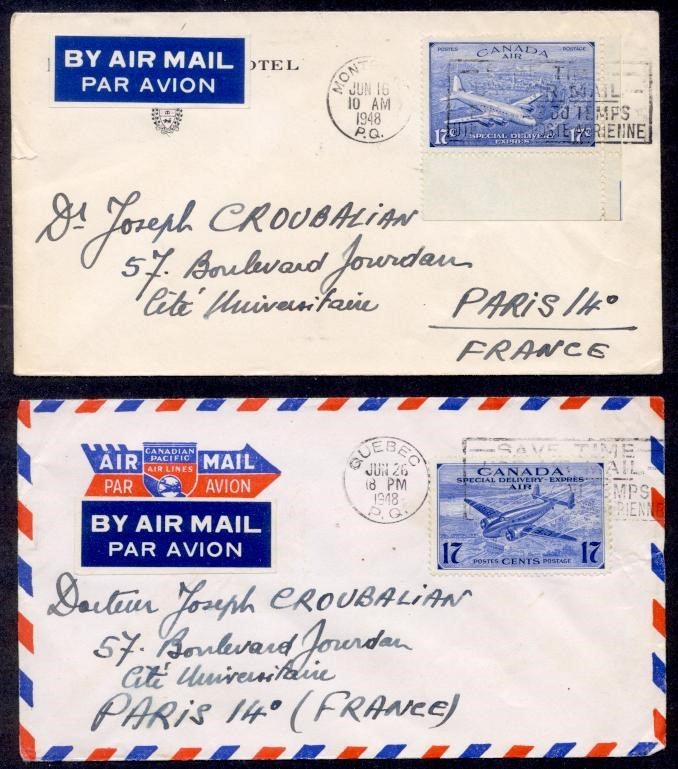 BY AIR MAIL
PAR AVION
OTEL
MONT
JUN 16
10 AM
1948
P.Q.
POSTES POSTAGE
CANADA
AIR
17¢ 17¢
SPECIAL DELIVERY
EXPRES
MAIL
TEMPS
AERIENNE
Dr Joseph CROUBALIAN
57. Boulevard Jourdan
Cité Universitaire
PARIS 14°
FRANCE
AIR MAIL
CANADIAN
PACIFIC
AIR LINES
PAR AVION
BY AIR MAIL
PAR AVION
QUEBEC
JUN 26
18 PM
1948
P.Q.
SAVE TIME
AIL
EMPS
RIENNE
CANADA
SPECIAL DELIVERY-EXPRES
AIR
17 17
POSTES CENTS POSTAGE
Docteur Joseph CROUBALIAN
57. Boulevard Jourdan
Cité Universitaire
PARIS 14° (FRANCE)